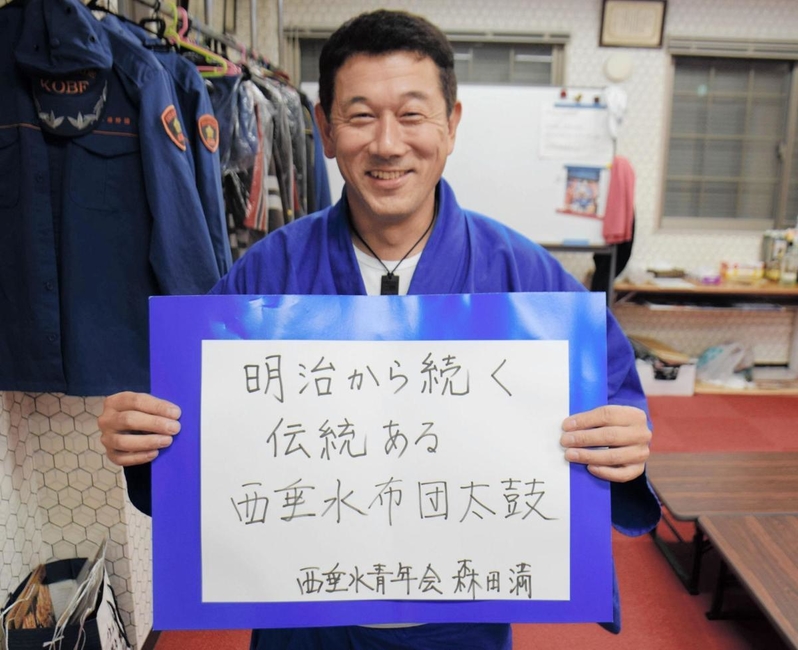 KOBE
明治から続く
伝統ある
西垂水布団太鼓
西垂水青年会 森田満